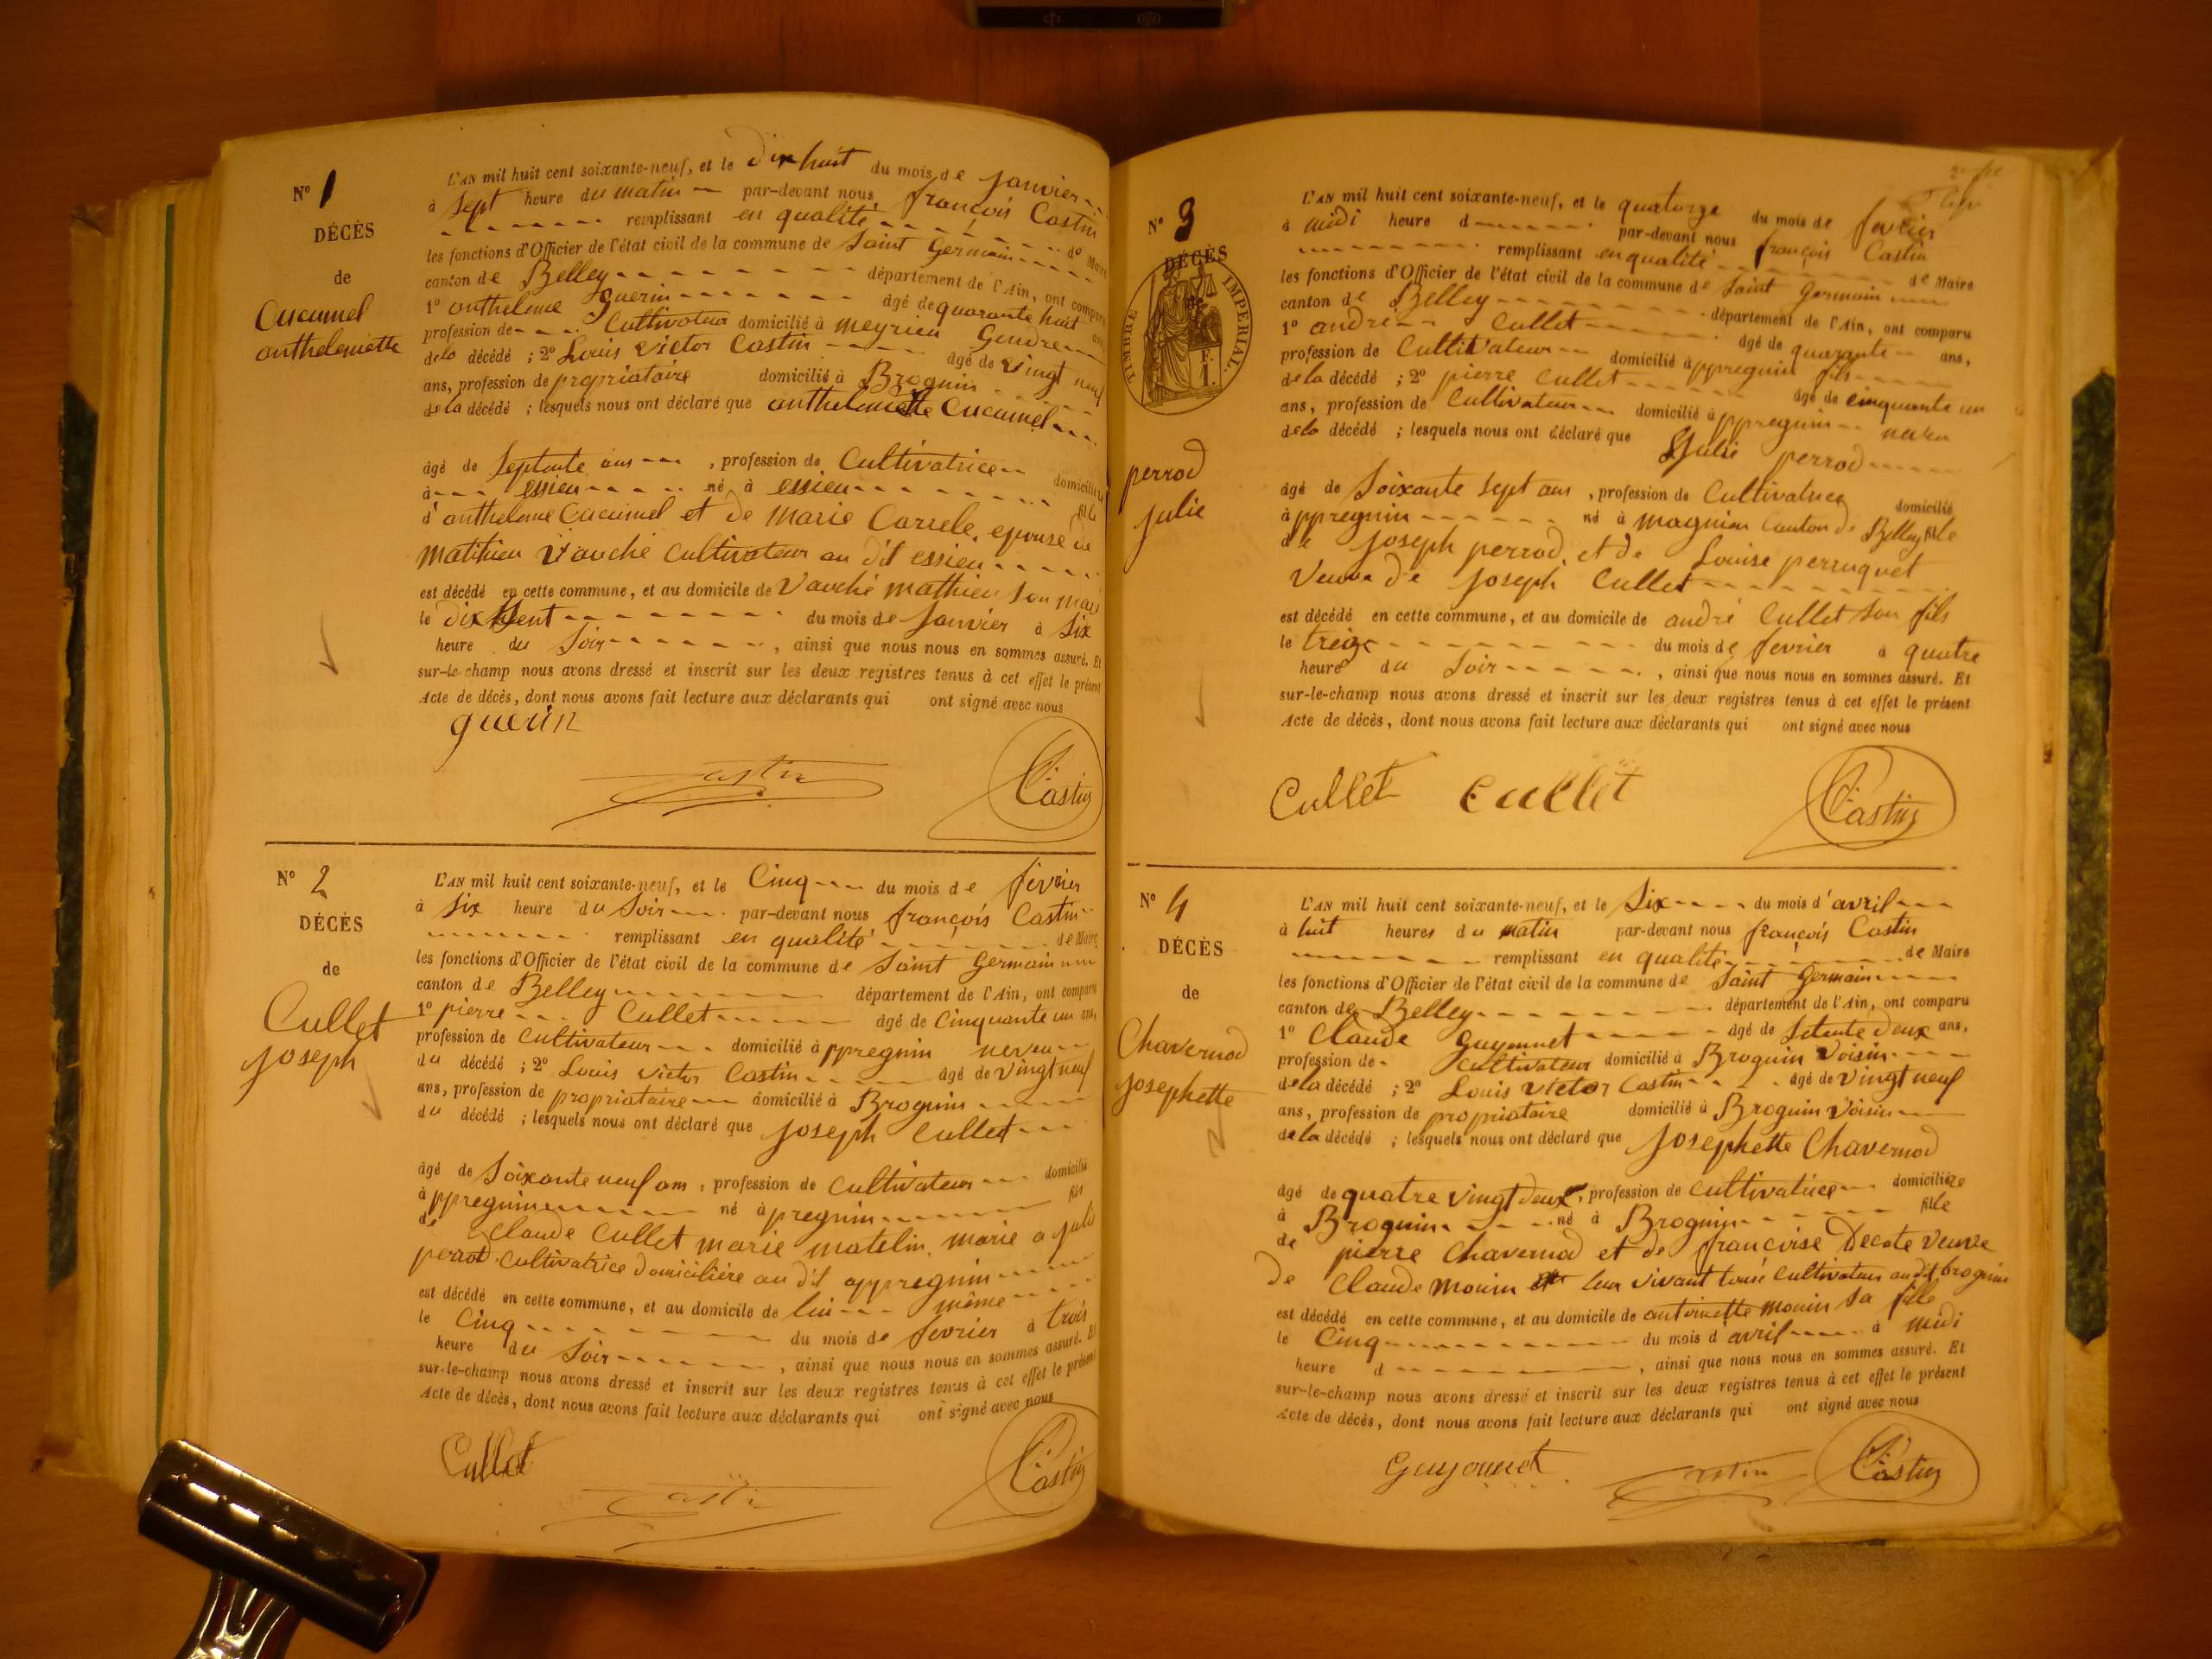 N° 1
DÉCÈS
de
Cucumel
anthelmette
L'AN mil huit cent soixante-neuf, et le dix huit du mois de janvier
à sept heure du matin par-devant nous françois Castin
remplissant en qualité de Maire
les fonctions d'Officier de l'état civil de la commune de Saint Germain
canton de Belley département de l'Ain, ont comparu
1° anthelme guerin âgé de quarante huit ans
profession de Cultivateur domicilié à meyrieu Gendre
de la décédé ; 2° Louis victor Castin âgé de vingt neuf
ans, profession de propriataire domicilié à Brognin
de la décédé ; lesquels nous ont déclaré que Cucumel
âgé de Septente ans , profession de Cultivatrice domicilié
à essieu né à essieu fille
d'anthelme Cucumel et de Marie Carrele, epouse de
Mathieu Vauché Cultivateur au dit essieu
est décédé en cette commune, et au domicile de Vauché mathieu son mari
le dix du mois de Janvier à Six
heure du Soir , ainsi que nous nous en sommes assuré. Et
sur-le-champ nous avons dressé et inscrit sur les deux registres tenus à cet effet le présent
Acte de décès, dont nous avons fait lecture aux déclarants qui ont signé avec nous
guerin
Castin Castin
N° 2
DÉCÈS
de
Cullet
joseph
L'AN mil huit cent soixante-neuf, et le Cinq du mois de fevrier
à six heure du Soir par-devant nous françois Castin
remplissant en qualité de Maire
les fonctions d'Officier de l'état civil de la commune de Saint Germain
canton de Belley département de l'Ain, ont comparu
1° pierre Cullet âgé de Cinquante un ans,
profession de Cultivateur domicilié à ppregnin neveu
du décédé ; 2° Louis victor Castin âgé de vingt neuf
ans, profession de propriataire domicilié à Brognin
du décédé ; lesquels nous ont déclaré que joseph Cullet
âgé de Soixante neuf ans , profession de Cultivateur domicilié
à ppregnin né à pregnin fils
de Claude Cullet marie matelin, marie a julie
perrod cultivatrice domicilière au dit appregnin
est décédé en cette commune, et au domicile de lui même
le Cinq du mois de fevrier à trois
heure du Soir , ainsi que nous nous en sommes assuré. Et
sur-le-champ nous avons dressé et inscrit sur les deux registres tenus à cet effet le présent
Acte de décès, dont nous avons fait lecture aux déclarants qui ont signé avec nous
Cullet
Castin Castin
N° 3
DÉCÈS
TIMBRE IMPERIAL.
perrod
julie
L'AN mil huit cent soixante-neuf, et le quatorze du mois de fevrier
à midi heure d par-devant nous françois Castin
remplissant en qualité de Maire
les fonctions d'Officier de l'état civil de la commune de Saint Germain
canton de Belley département de l'Ain, ont comparu
1° andré Cullet âgé de quarante ans,
profession de Cultivateur domicilié à ppregnin fils
de la décédé ; 2° pierre Cullet âgé de cinquante un
ans, profession de Cultivateur domicilié à ppregnin neveu
de la décédé ; lesquels nous ont déclaré que Julie perrod
âgé de Soixante sept ans , profession de Cultivatrice domicilié
à ppregnin né à magnieu Canton de Belley fille
de joseph perrod et de Louise perruquet
Veuve de joseph Cullet
est décédé en cette commune, et au domicile de andré Cullet son fils
le treize du mois de fevrier à quatre
heure du Soir , ainsi que nous nous en sommes assuré. Et
sur-le-champ nous avons dressé et inscrit sur les deux registres tenus à cet effet le présent
Acte de décès, dont nous avons fait lecture aux déclarants qui ont signé avec nous
Cullet Cullet Castin
N° 4
DÉCÈS
de
Chavernod
josephette
L'AN mil huit cent soixante-neuf, et le Six du mois d'avril
à huit heures du matin par-devant nous françois Castin
remplissant en qualité de Maire
les fonctions d'Officier de l'état civil de la commune de Saint Germain
canton de Belley département de l'Ain, ont comparu
1° Claude Guyonnet âgé de Setente deux ans,
profession de Cultivateur domicilié à Brognin Voisin
de la décédé ; 2° Louis victor Castin âgé de vingt neuf
ans, profession de propriataire domicilié à Brognin Voisin
de la décédé ; lesquels nous ont déclaré que josephette Chavernod
âgé de quatre vingt deux , profession de Cultivatrice domicilière
à Brognin né à Brognin fille
de pierre Chavernod et de françoise Decote veuve
de Claude Monin leur vivant Cultivateur au dit brognin
est décédé en cette commune, et au domicile de antoinette monin sa fille
le Cinq du mois d'avril à midi
heure d , ainsi que nous nous en sommes assuré. Et
sur-le-champ nous avons dressé et inscrit sur les deux registres tenus à cet effet le présent
Acte de décès, dont nous avons fait lecture aux déclarants qui ont signé avec nous
Guyonnet Castin Castin